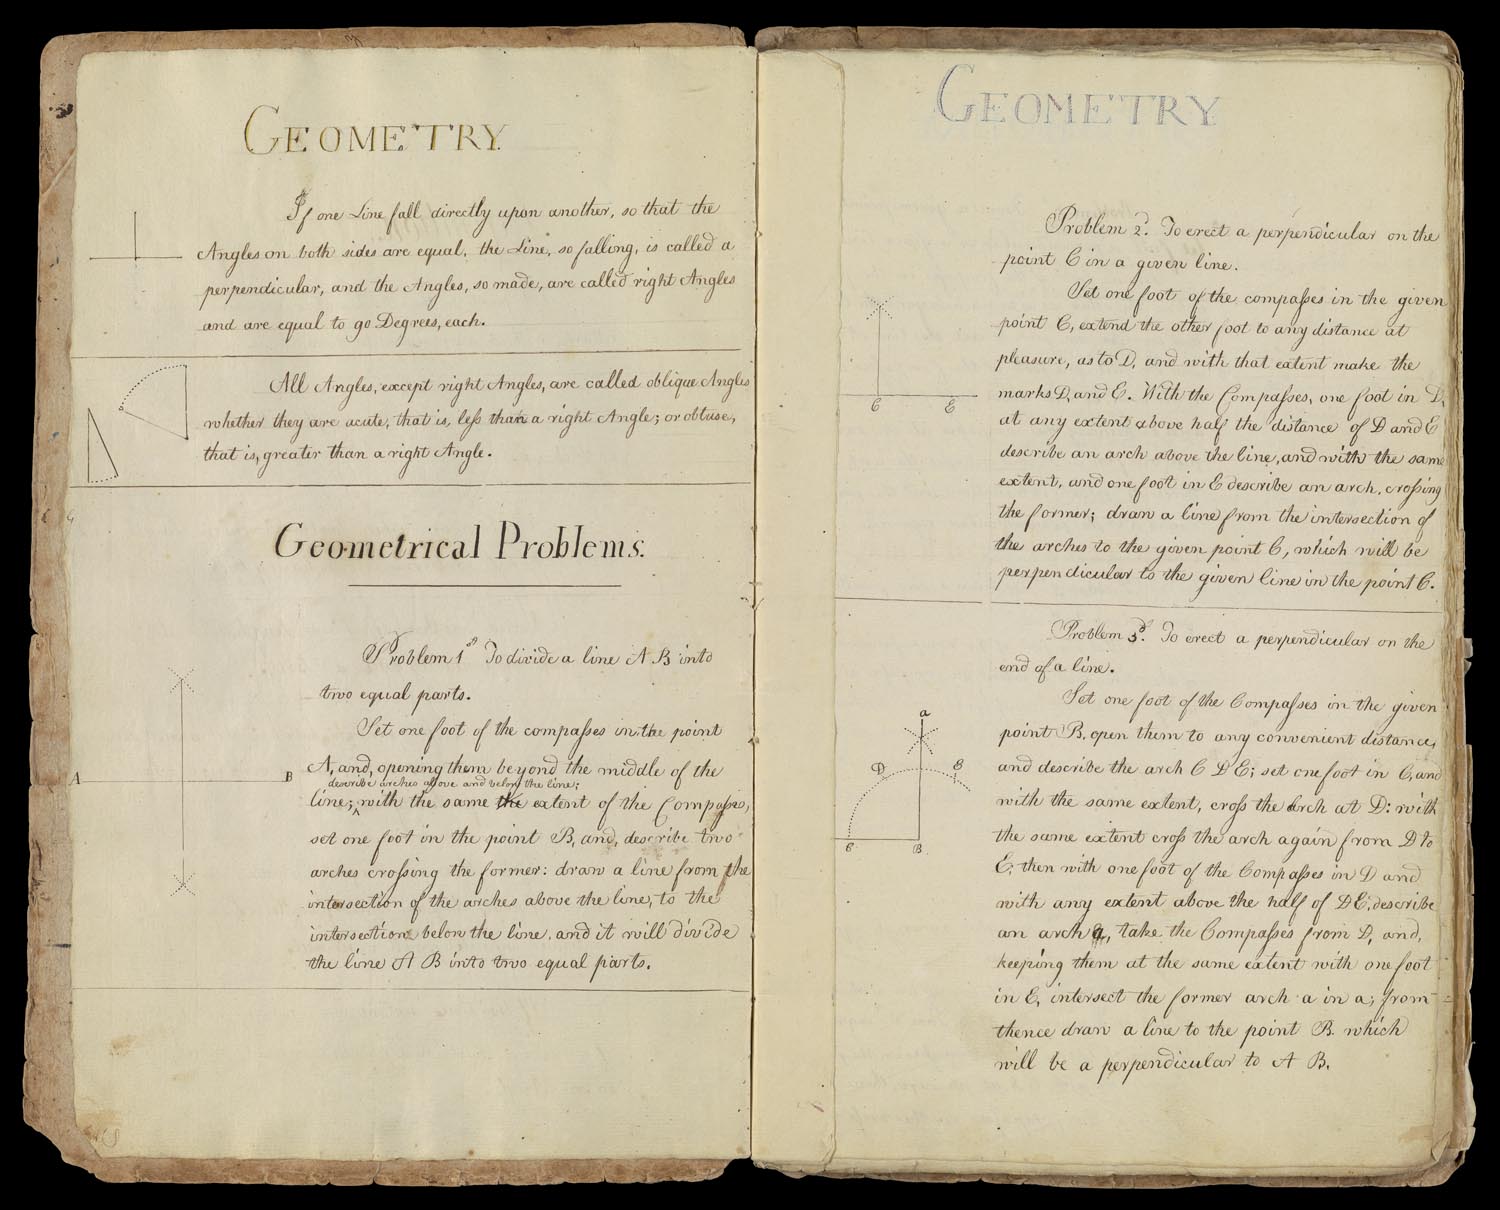 GEOMETRY
If one Line fall directly upon another, so that the
Angles on both sides are equal, the Line, so falling, is called a
perpendicular, and the Angles, so made, are called right Angles
and are equal to 90 Degrees, each.
All Angles, except right Angles, are called oblique Angles
whether they are acute, that is, less than a right Angle; or obtuse,
that is, greater than a right Angle.
Geometrical Problems.
Problem 1st To divide a line A B into
two equal parts.
Set one foot of the compasses in the point
A, and, opening them beyond the middle of the
describe arches above and below the line;
line; ^ with the same the extent of the Compasses,
set one foot in the point B, and, describe two
arches crossing the former: draw a line from the
intersection of the arches above the line, to the
intersection below the line, and it will divide
the line A B into two equal parts.
A
B
GEOMETRY
Problem 2d. To erect a perpendicular on the
point C in a given line.
Set one foot of the compasses in the given
point C, extend the other foot to any distance at
pleasure, as to D, and with that extent make the
marks D, and E. With the Compasses, one foot in D,
at any extent above half the distance of D and E
describe an arch above the line, and with the same
extent, and one foot in E describe an arch, crossing
the former; draw a line from the intersection of
the arches to the given point C, which will be
perpendicular to the given line in the point C.
C
E
Problem 3d. To erect a perpendicular on the
end of a line.
Set one foot of the Compasses in the given
point B, open them to any convenient distance,
and describe the arch C D E; set one foot in C, and
with the same extent, cross the arch at D: with
the same extent cross the arch again from D to
E, then with one foot of the Compasses in D and
with any extent above the half of D E, describe
an arch a, take the Compasses from D, and,
keeping them at the same extent with one foot
in E, intersect the former arch a in a; from
thence draw a line to the point B. which
will be a perpendicular to A B.
a
D
E
C
B